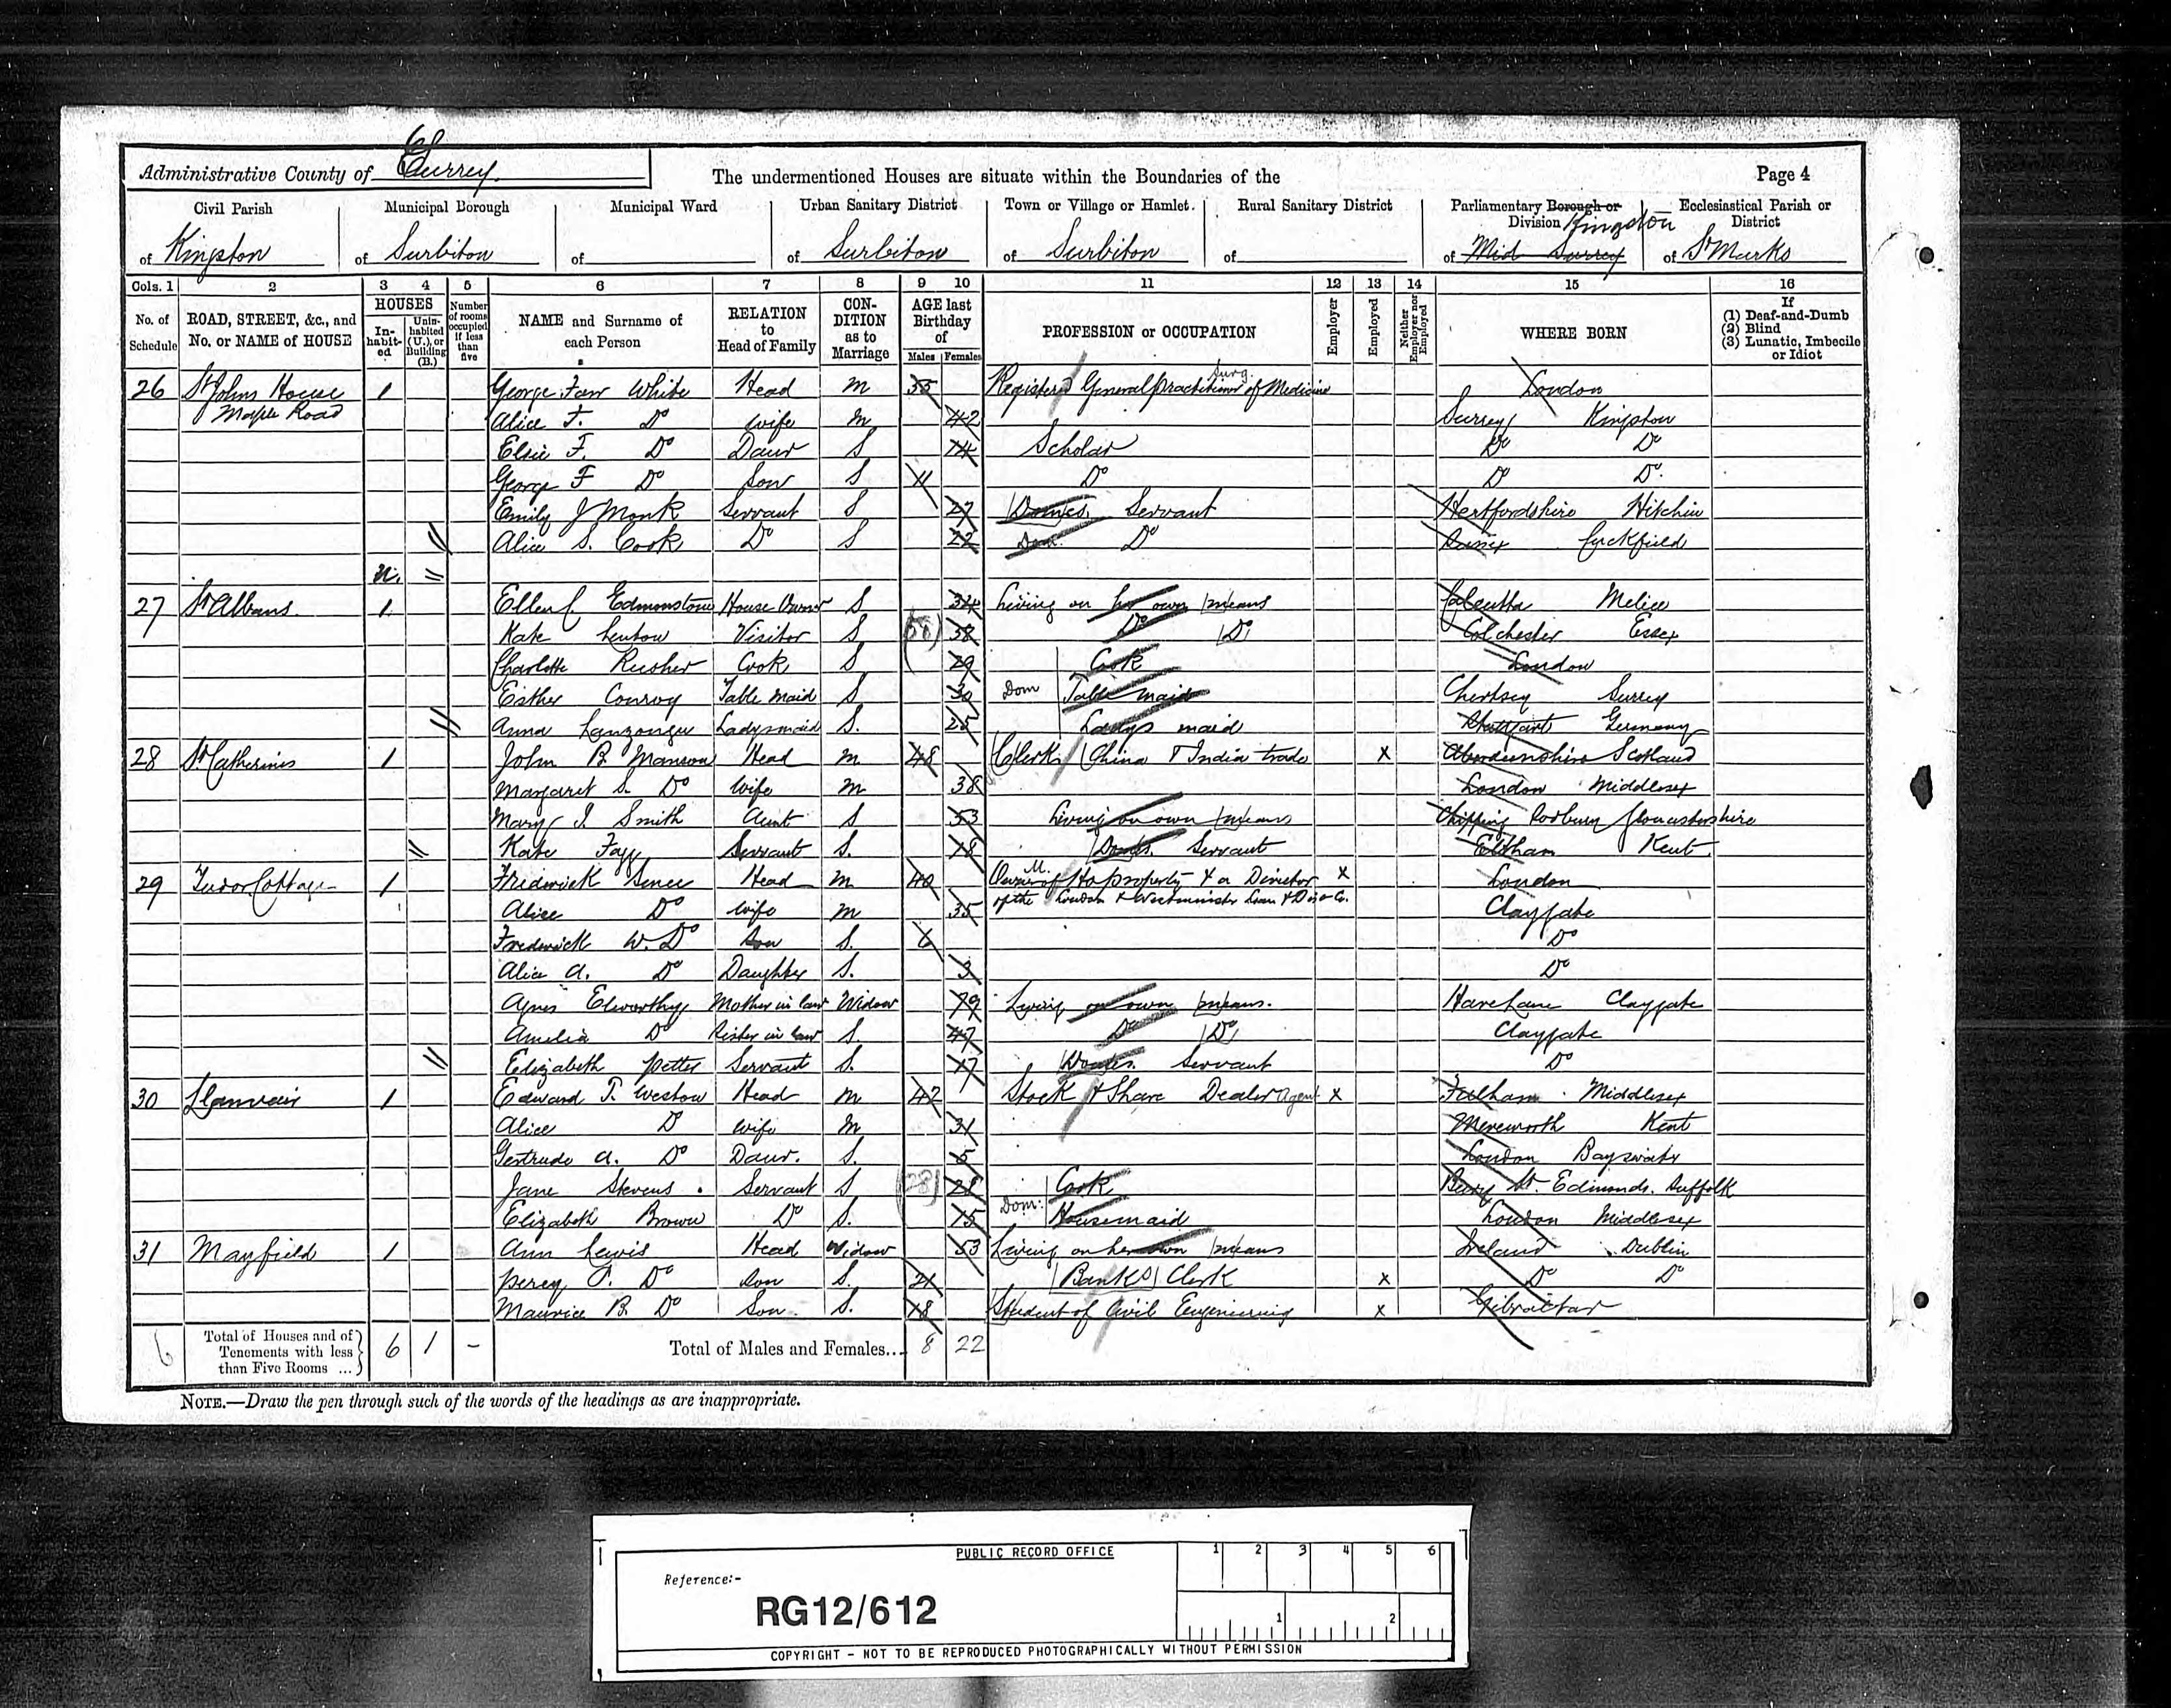 Administrative County of Surrey.
The undermentioned Houses are situate within the Boundaries of the
Page 4
Civil Parish of Kingston
Municipal Borough of Surbiton
Municipal Ward of
Urban Sanitary District of Surbiton
Town or Village or Hamlet. of Surbiton
Rural Sanitary District of
Parliamentary Borough or Division Kingston of Mid Surrey
Ecclesiastical Parish or District of St Marks
Cols. 1 2 3 4 5 6 7 8 9 10 11 12 13 14 15 16
No. of Schedule
ROAD, STREET, &c., and No. or NAME of HOUSE
HOUSES
In-habit-ed
Unin-habited (U.), or Building (B.)
Number of rooms occupied if less than five
NAME and Surname of each Person
RELATION to Head of Family
CON-DITION as to Marriage
AGE last Birthday of
Males Females
PROFESSION or OCCUPATION
Employer
Employed
Neither Employer nor Employed
WHERE BORN
If (1) Deaf-and-Dumb (2) Blind (3) Lunatic, Imbecile or Idiot
26 St Johns House 1 George Farr White Head M 55 Registered General practitioner Surg. of Medicine London
Maple Road Alice F. Do wife M 42 Surrey Kingston
Elsie F. Do Daur S 14 Scholar Do Do
George F Do Son S 11 Do Do Do.
Emily J Monk Servant S 27 Domes. Servant Hertfordshire Hitchin
Alice S. Cook Do S 22 Dom. Do Sussex Cuckfield
27 St Albans. 1 Ellen C Edmonstone House Owner S 34 Living on her own means Calcutta
Kate Do S 38 Do Do Colchester Essex
Charlotte Rusher Cook S 29 Cook London
Esther Conroy Table Maid S 30 Dom Table maid Chertsey Surrey
Anna Ladysmaid S. 25 Ladys maid Stuttgart Germany
28 St Catherines 1 John B. Manson Head M 48 Clerk China & India trade x Aberdeenshire Scotland
Margaret S. Do wife M 38 London Middlesex
Mary I Smith Aunt S 53 Living on own means Chipping Sodbury Gloucestershire
Kate Fagg Servant S. 18 Domes. Servant Eltham Kent
29 Tudor Cottage 1 Frederick Smee Head M 40 Owner of Ho property & a Director x London
of the London & Westminster Loan & Dis Co.
Alice Do wife M 35 Claygate
Frederick W. Do Son S. 6 Do
Alice A. Do Daughter S. 3 Do
Agnes Elworthy Mother in law Widow 79 Living on own means. Hare Lane Claygate
Amelia Do Sister in law S. 47 Do Do Claygate
Elizabeth Petter Servant S. 17 Domes. Servant Do
30 Llanvair 1 Edward T. Westow Head M 42 Stock & Share Dealer Agent x Fulham Middlesex
Alice Do wife M 31 Mereworth Kent
Gertrude A. Do Daur. S. 5 London Bayswater
Jane Stevens Servant S 28 Cook Bury St. Edmonds. Suffolk
Elizabeth Brown Do S. 15 Dom: Housemaid London Middlesex
31 Mayfield 1 Ann Lewis Head Widow 53 Living on her own means Ireland Dublin
Percy P. Do Son S. 21 Banks Clerk x Do Do
Maurice B. Do Son. S. 18 Student of Civil Engineering x Gibraltar
6 Total of Houses and of Tenements with less than Five Rooms ... 6 1 - Total of Males and Females... 8 22
NOTE.—Draw the pen through such of the words of the headings as are inappropriate.
PUBLIC RECORD OFFICE
1 2 3 4 5 6
Reference:-
RG12/612
1 2
COPYRIGHT - NOT TO BE REPRODUCED PHOTOGRAPHICALLY WITHOUT PERMISSION